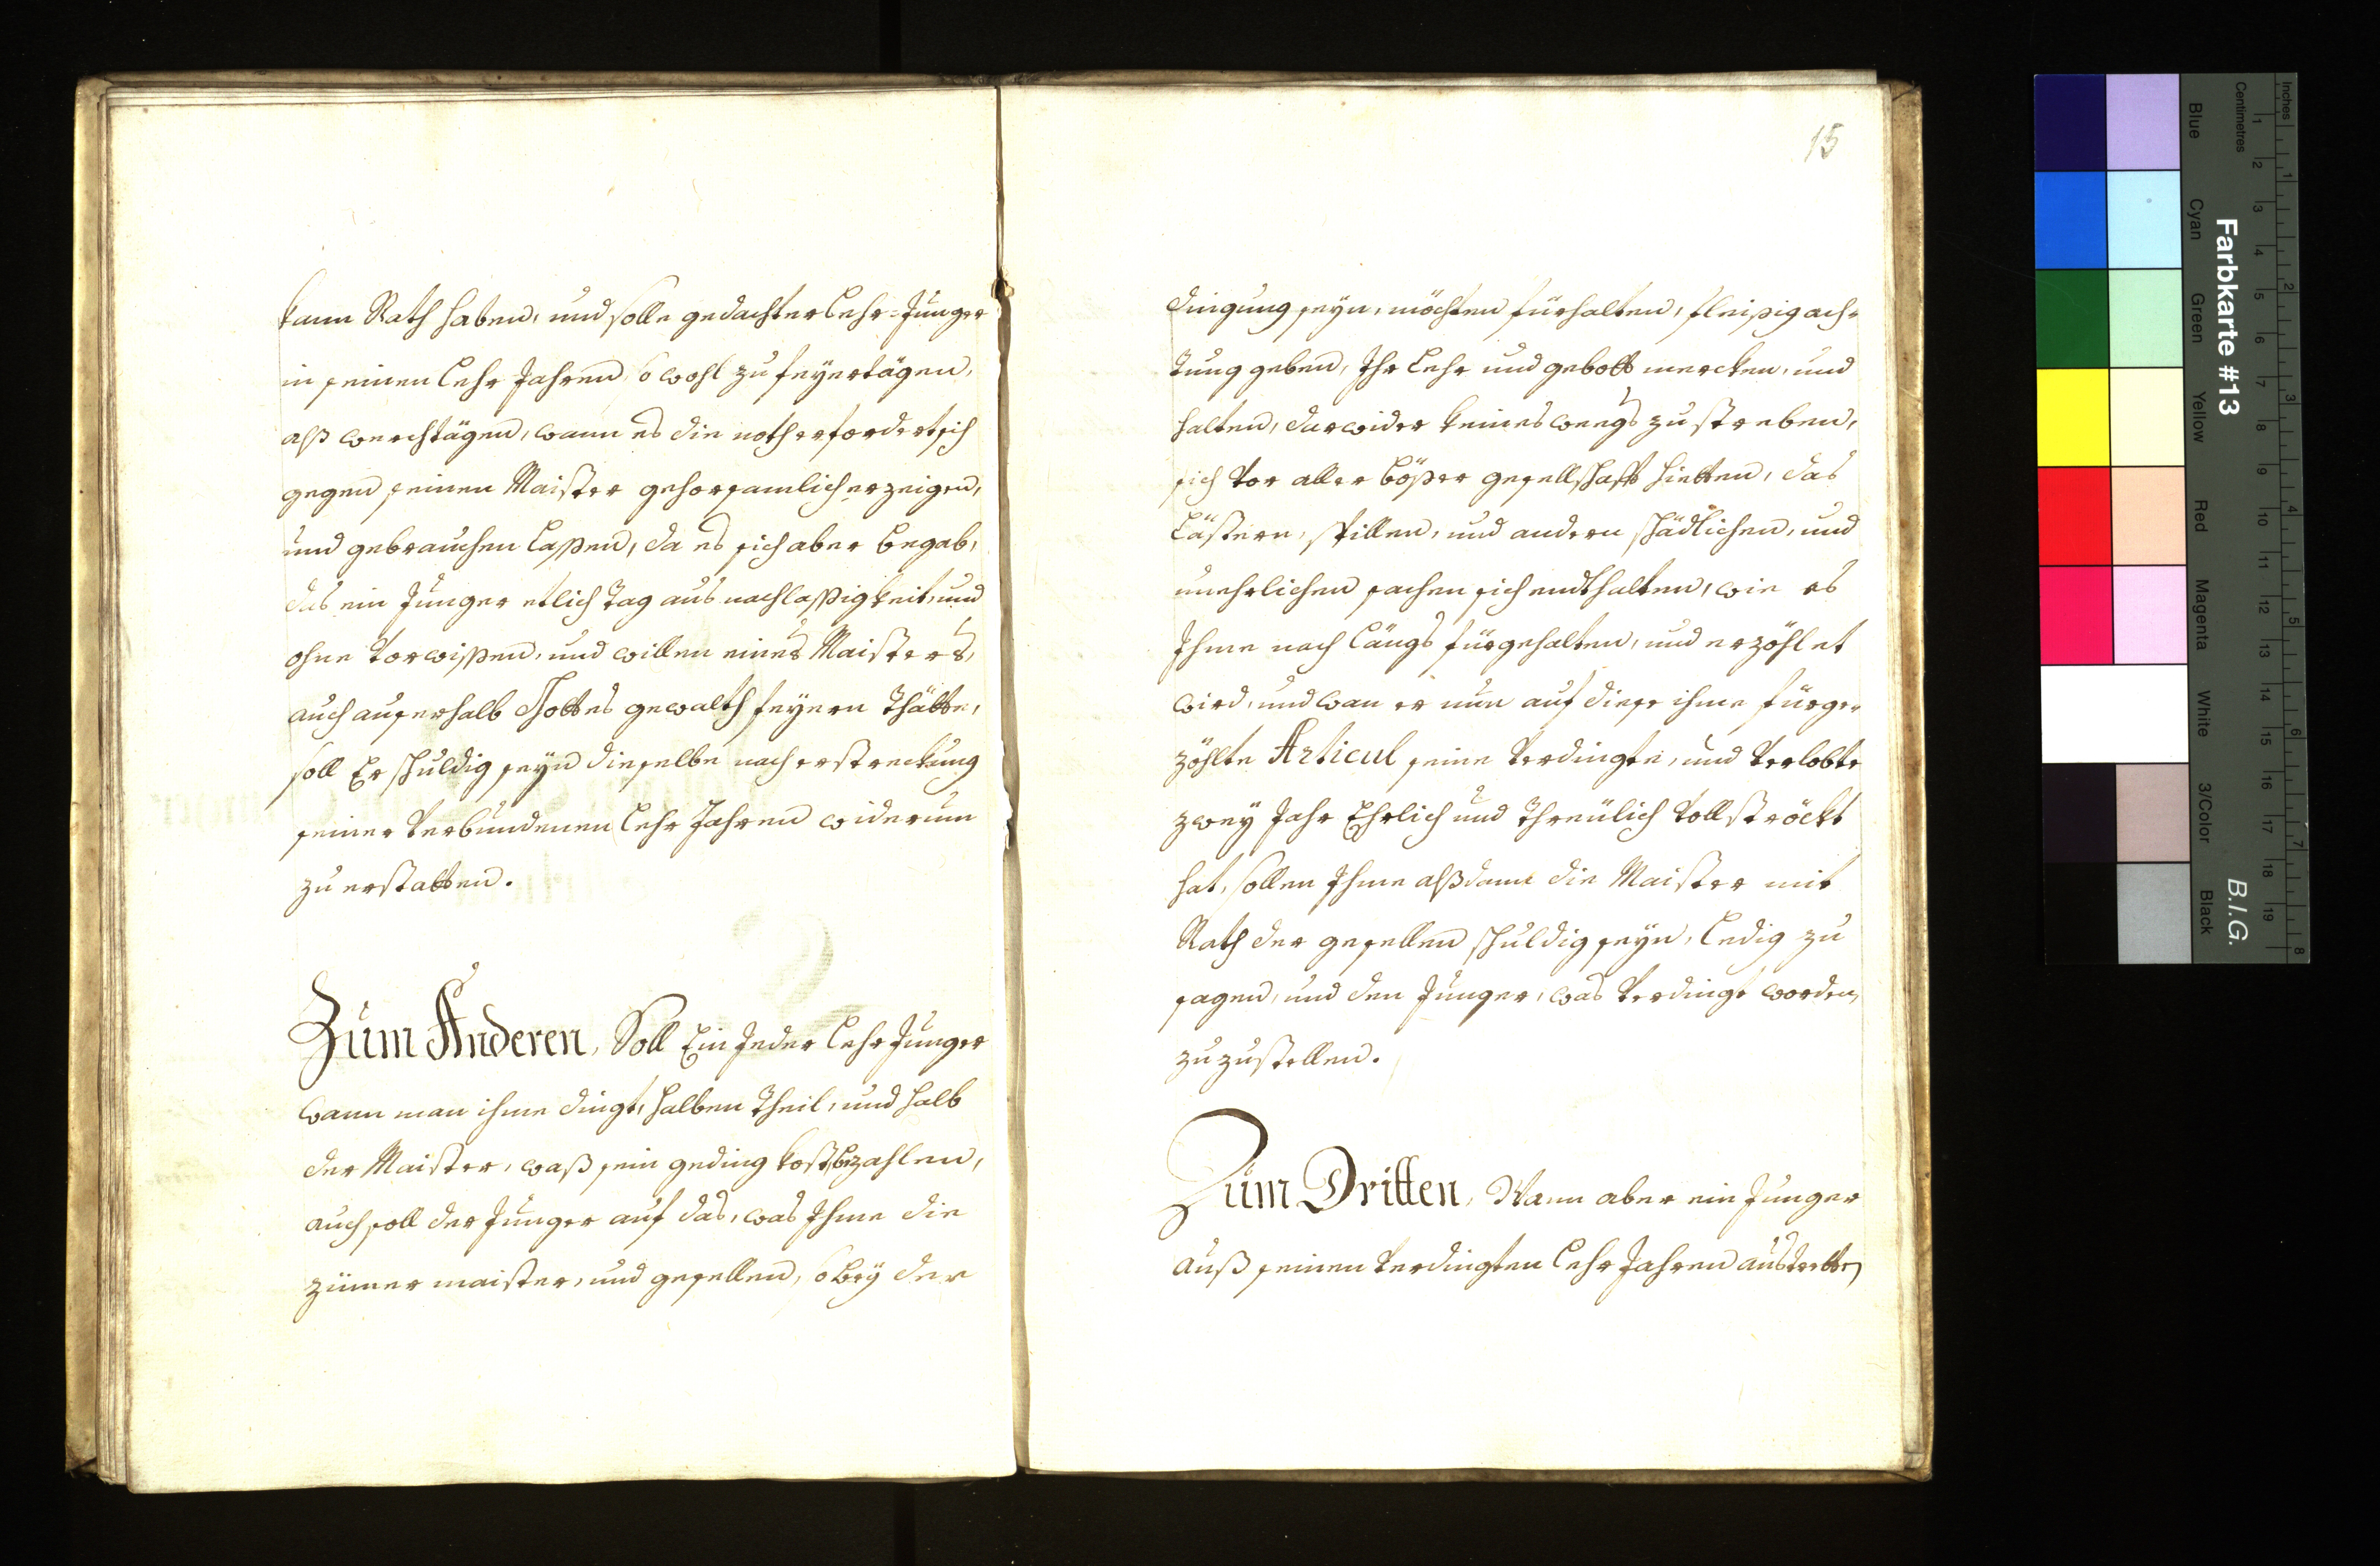 kann Rath haben, und solle gedachter Lehr-Junger
in seinen Lehr Jahren so wohl zu feyertägen,
alß werchtägen, wann es die noth erfordert sich
gegen seinen Maister gehorsamlich erzeigen,
und gebrauchen laßen, da es sich aber begab,
das ein Junger etlich Tag aus nachlaßigkeit, und
ohne vorwißen, und willen eines Maisters,
auch auserhalb Gottes gewalth feyern Thätte,
soll Er schuldig seyn dieselbe nach erstreckung
seiner verbundenen Lehr Jahren widerum
zu erstatten.
Zum Anderen, Soll Ein Jeder Lehr Junger
wann man ihme dingt, halben Theil, und halb
der Maister, waß sein geding kost, bezahlen,
auch soll der Junger auf das, was Ihme die
zimer maister, und gesellen, so bey der
15
dingung seyn, möchten fürhalten, fleißig ach-
tung geben, Ihr Lehr und gebott mercken, und
halten, darwider keines weegs zu streben,
sich vor aller bößer gesellschafft hietten, das
Lästern, spillen, und andern schädlichen, und
unehrlichen sachen sich endthalten, wie es
Ihme nach längs fürgehalten, und erzöhlet
wird, und wan er nun auf diese ihme fürge-
zöhlte Articul seine verdingte, und verlobte
zwey Jahr Ehrlich und Threulich vollströckt
hat, sollen Ihme alßdann die Maister mit
Rath der gesellen schuldig seyn, Ledig zu
sagen, und den Junger, was verdingt worden,
zuzustellen.
Zum Dritten, Wann aber ein Junger
auß seinen verdingten Lehr Jahren austretten
Farbkarte #13
B.I.G.
Inches
Centimetres
1 2 3 4 5 6 7 8 9 10 11 12 13 14 15 16 17 18 19
1 2 3 4 5 6 7 8
Blue
Cyan
Green
Yellow
Red
Magenta
White
3/Color
Black